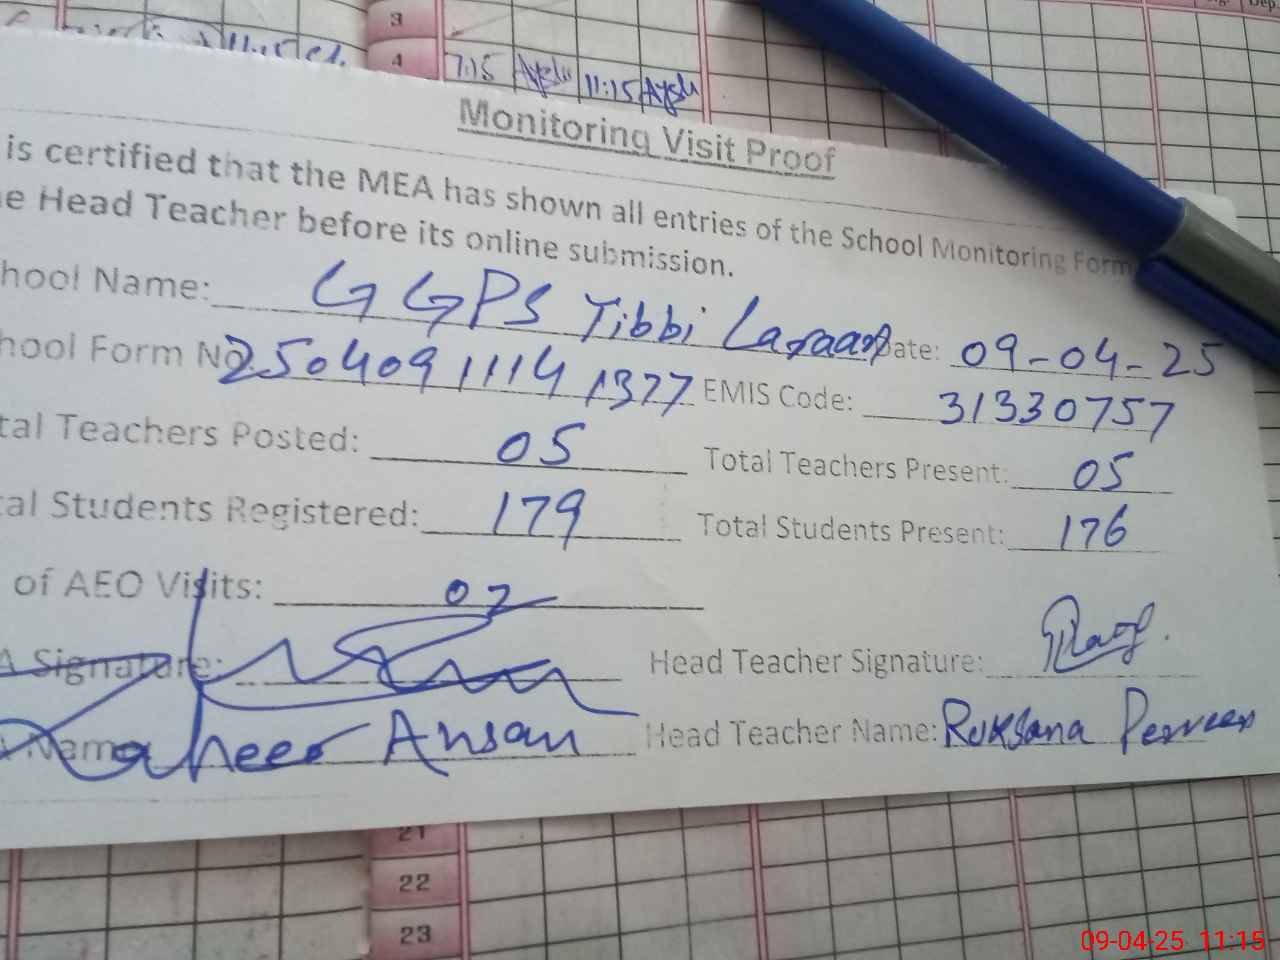 3
4 7:15 11:15
Monitoring Visit Proof
is certified that the MEA has shown all entries of the School Monitoring Form
e Head Teacher before its online submission.
hool Name: GGPS Tibbi Lararan Date: 09-04-25
hool Form No 25040911141377 EMIS Code: 31330757
tal Teachers Posted: 05 Total Teachers Present: 05
al Students Registered: 179 Total Students Present: 176
of AEO Visits: 02
A Signature: Head Teacher Signature:
Name Zaheer Ansari Head Teacher Name: Ruksana Perveen
21
22
23
09-04-25 11:15